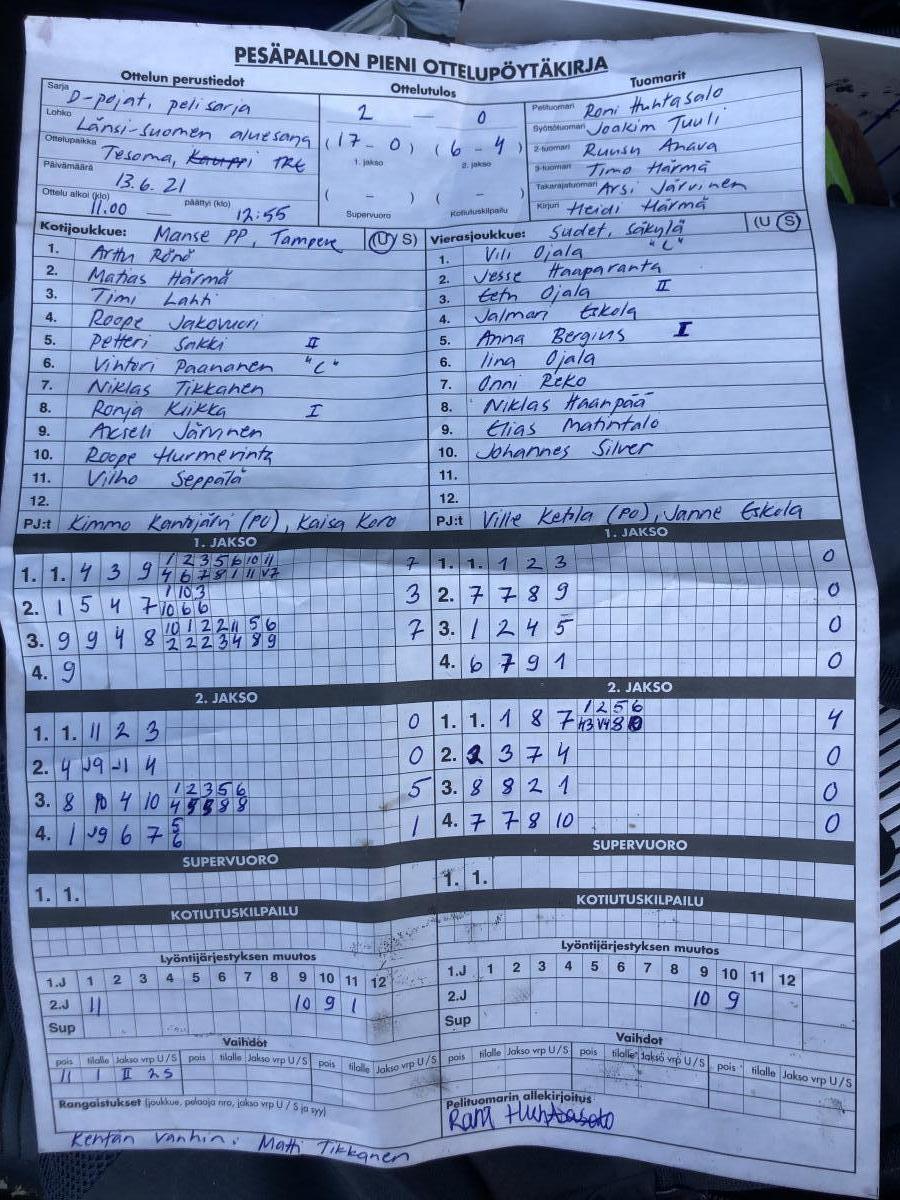 PESÄPALLON PIENI OTTELUPÖYTÄKIRJA
Ottelun perustiedot
Sarja D-pojat, pelisarja
Lohko Länsi-suomen aluesarja
Ottelupaikka Tesoma, Kauppi TRE
Päivämäärä 13.6.21
Ottelu alkoi (klo) 11.00 — päättyi (klo) 12:55
Ottelutulos
2 — 0
(17 - 0) (6 - 4)
1. jakso 2. jakso
( – ) ( – )
Supervuoro Kotiutuskilpailu
Tuomarit
Pelituomari Roni Huhtasalo
Syöttötuomari Joakim Tuuli
2-tuomari Ruusu Anava
3-tuomari Timo Härmä
Takarajatuomari Arsi Järvinen
Kirjuri Heidi Härmä
Kotijoukkue: Manse PP, Tampere (U S)
1. Arttu Rönö
2. Matias Härmä
3. Timi Lahti
4. Roope Jakovuori
5. Petteri Sakki II
6. Vintori Paananen "C"
7. Niklas Tikkanen
8. Ronja Kiikka I
9. Akseli Järvinen
10. Roope Hurmerinta
11. Vilho Seppälä
12.
PJ:t Kimmo Kantojärvi (PU), Kaisa Koro
Vierasjoukkue: Sudet, Säkylä (U S)
1. Vili Ojala "C"
2. Jesse Haaparanta
3. Eetu Ojala II
4. Jalmari Eskola
5. Anna Bergius I
6. Iina Ojala
7. Onni Reko
8. Niklas Haanpää
9. Elias Matintalo
10. Johannes Silver
11.
12.
PJ:t Ville Ketola (PO), Janne Eskola
1. JAKSO
1. 1. 4 3 9 1 2 3 5 6 10 11 7
4 6 7 8 1 11 V7
2. 1 5 4 7 1 10 3 3
10 6 6
3. 9 9 4 8 10 1 2 2 11 5 6 7
2 2 2 3 4 8 9
4. 9
1. JAKSO
1. 1. 1 2 3 0
2. 7 7 8 9 0
3. 1 2 4 5 0
4. 6 7 9 1 0
2. JAKSO
1. 1. 11 2 3 0
2. 4 J9 J1 4 0
3. 8 10 4 10 1 2 3 5 6 5
4 5 5 8 8
4. 1 J9 6 7 5 1
6
2. JAKSO
1. 1. 1 8 7 1 2 5 6 4
H3 V4 8
2. 2 3 7 4 0
3. 8 8 2 1 0
4. 7 7 8 10 0
SUPERVUORO
1. 1.
SUPERVUORO
1. 1.
KOTIUTUSKILPAILU
KOTIUTUSKILPAILU
Lyöntijärjestyksen muutos
1.J 1 2 3 4 5 6 7 8 9 10 11 12
2.J 11 10 9 1
Sup
Lyöntijärjestyksen muutos
1.J 1 2 3 4 5 6 7 8 9 10 11 12
2.J 10 9
Sup
Vaihdot
pois tilalle Jakso vrp U/S pois tilalle Jakso vrp U/S pois tilalle Jakso vrp U/S
11 1 II 2S
Vaihdot
pois tilalle Jakso vrp U/S pois tilalle Jakso vrp U/S pois tilalle Jakso vrp U/S
Rangaistukset (joukkue, pelaaja nro, jakso vrp U / S ja syy)
Kentän vanhin: Matti Tikkanen
Pelituomarin allekirjoitus
Roni Huhtasalo